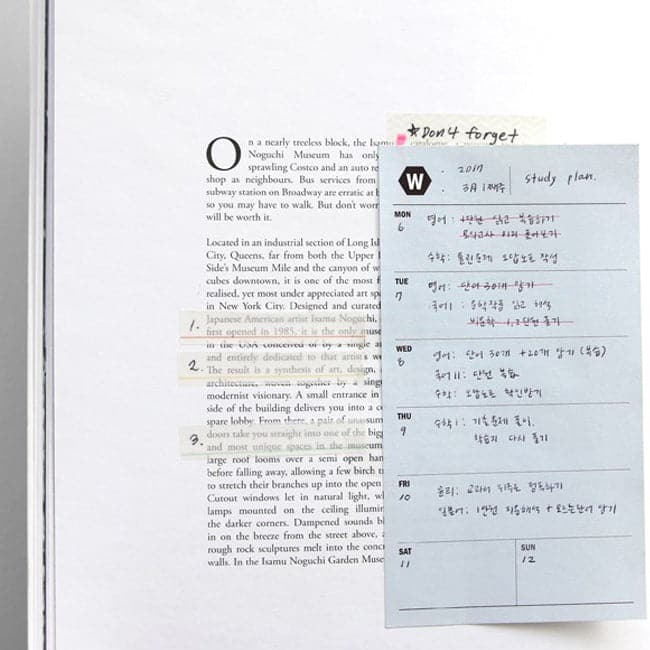 On a nearly treeless block, the Isamu
Noguchi Museum has only
sprawling Costco and an auto re
shop as neighbours. Bus services from
subway station on Broadway are erratic at b
so you may have to walk. But don't worr
will be worth it.
Located in an industrial section of Long Isl
City, Queens, far from both the Upper
Side's Museum Mile and the canyon of w
cubes downtown, it is one of the most
realised, yet most under appreciated art sp
in New York City. Designed and curated
1. Japanese American artist Isamu Noguchi,
first opened in 1985, it is the only muse
in the USA conceived of by a single a
2. and entirely dedicated to that artist's w
The result is a synthesis of art, design,
architecture, woven together by a singu
modernist visionary. A small entrance in
side of the building delivers you into a c
spare lobby. From there, a pair of unassum
3. doors take you straight into one of the bigg
and most unique spaces in the museum
large roof looms over a semi open han
before falling away, allowing a few birch t
to stretch their branches up into the open
Cutout windows let in natural light, w
lamps mounted on the ceiling illumin
the darker corners. Dampened sounds b
in on the breeze from the street above,
rough rock sculptures melt into the conc
walls. In the Isamu Noguchi Garden Muse
★Don't forget
W . 2017
. 3月 1째주 study plan.
MON 6 영어: 1단원 읽고 복습하기
모의고사 미리 풀어보기
수학: 틀린문제 오답노트 작성
TUE 7 영어: 단어 30개 암기
국어I: 문학작품 읽고 해설
비문학 1,2단원 풀기
WED 8 영어: 단어 30개 +20개 암기 (복습)
국어II: 단원 복습
수학: 오답노트 확인받기
THU 9 수학I: 기출문제 풀이.
학습지 다시 풀기
FRI 10 윤리: 교과서 위주로 정독하기
일본어: 1단원 지문해석 + 모르는단어 암기
SAT 11 SUN 12